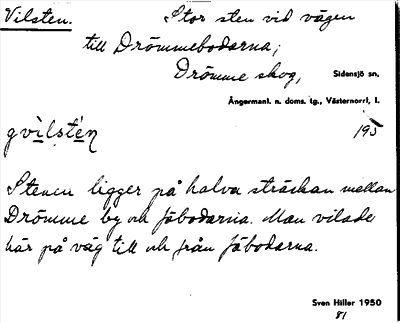 Vilsten. Stor sten vid vägen
till Drömmebodarna;
Drömme skog, Sidensjö sn,
Ångermanl. n. doms. tg., Västernorrl. l.
gvìlsté̱n 195
Stenen ligger på halva sträckan mellan
Drömme by och fäbodarna. Man vilade
här på väg till och från fäbodarna.
Sven Hiller 1950
81